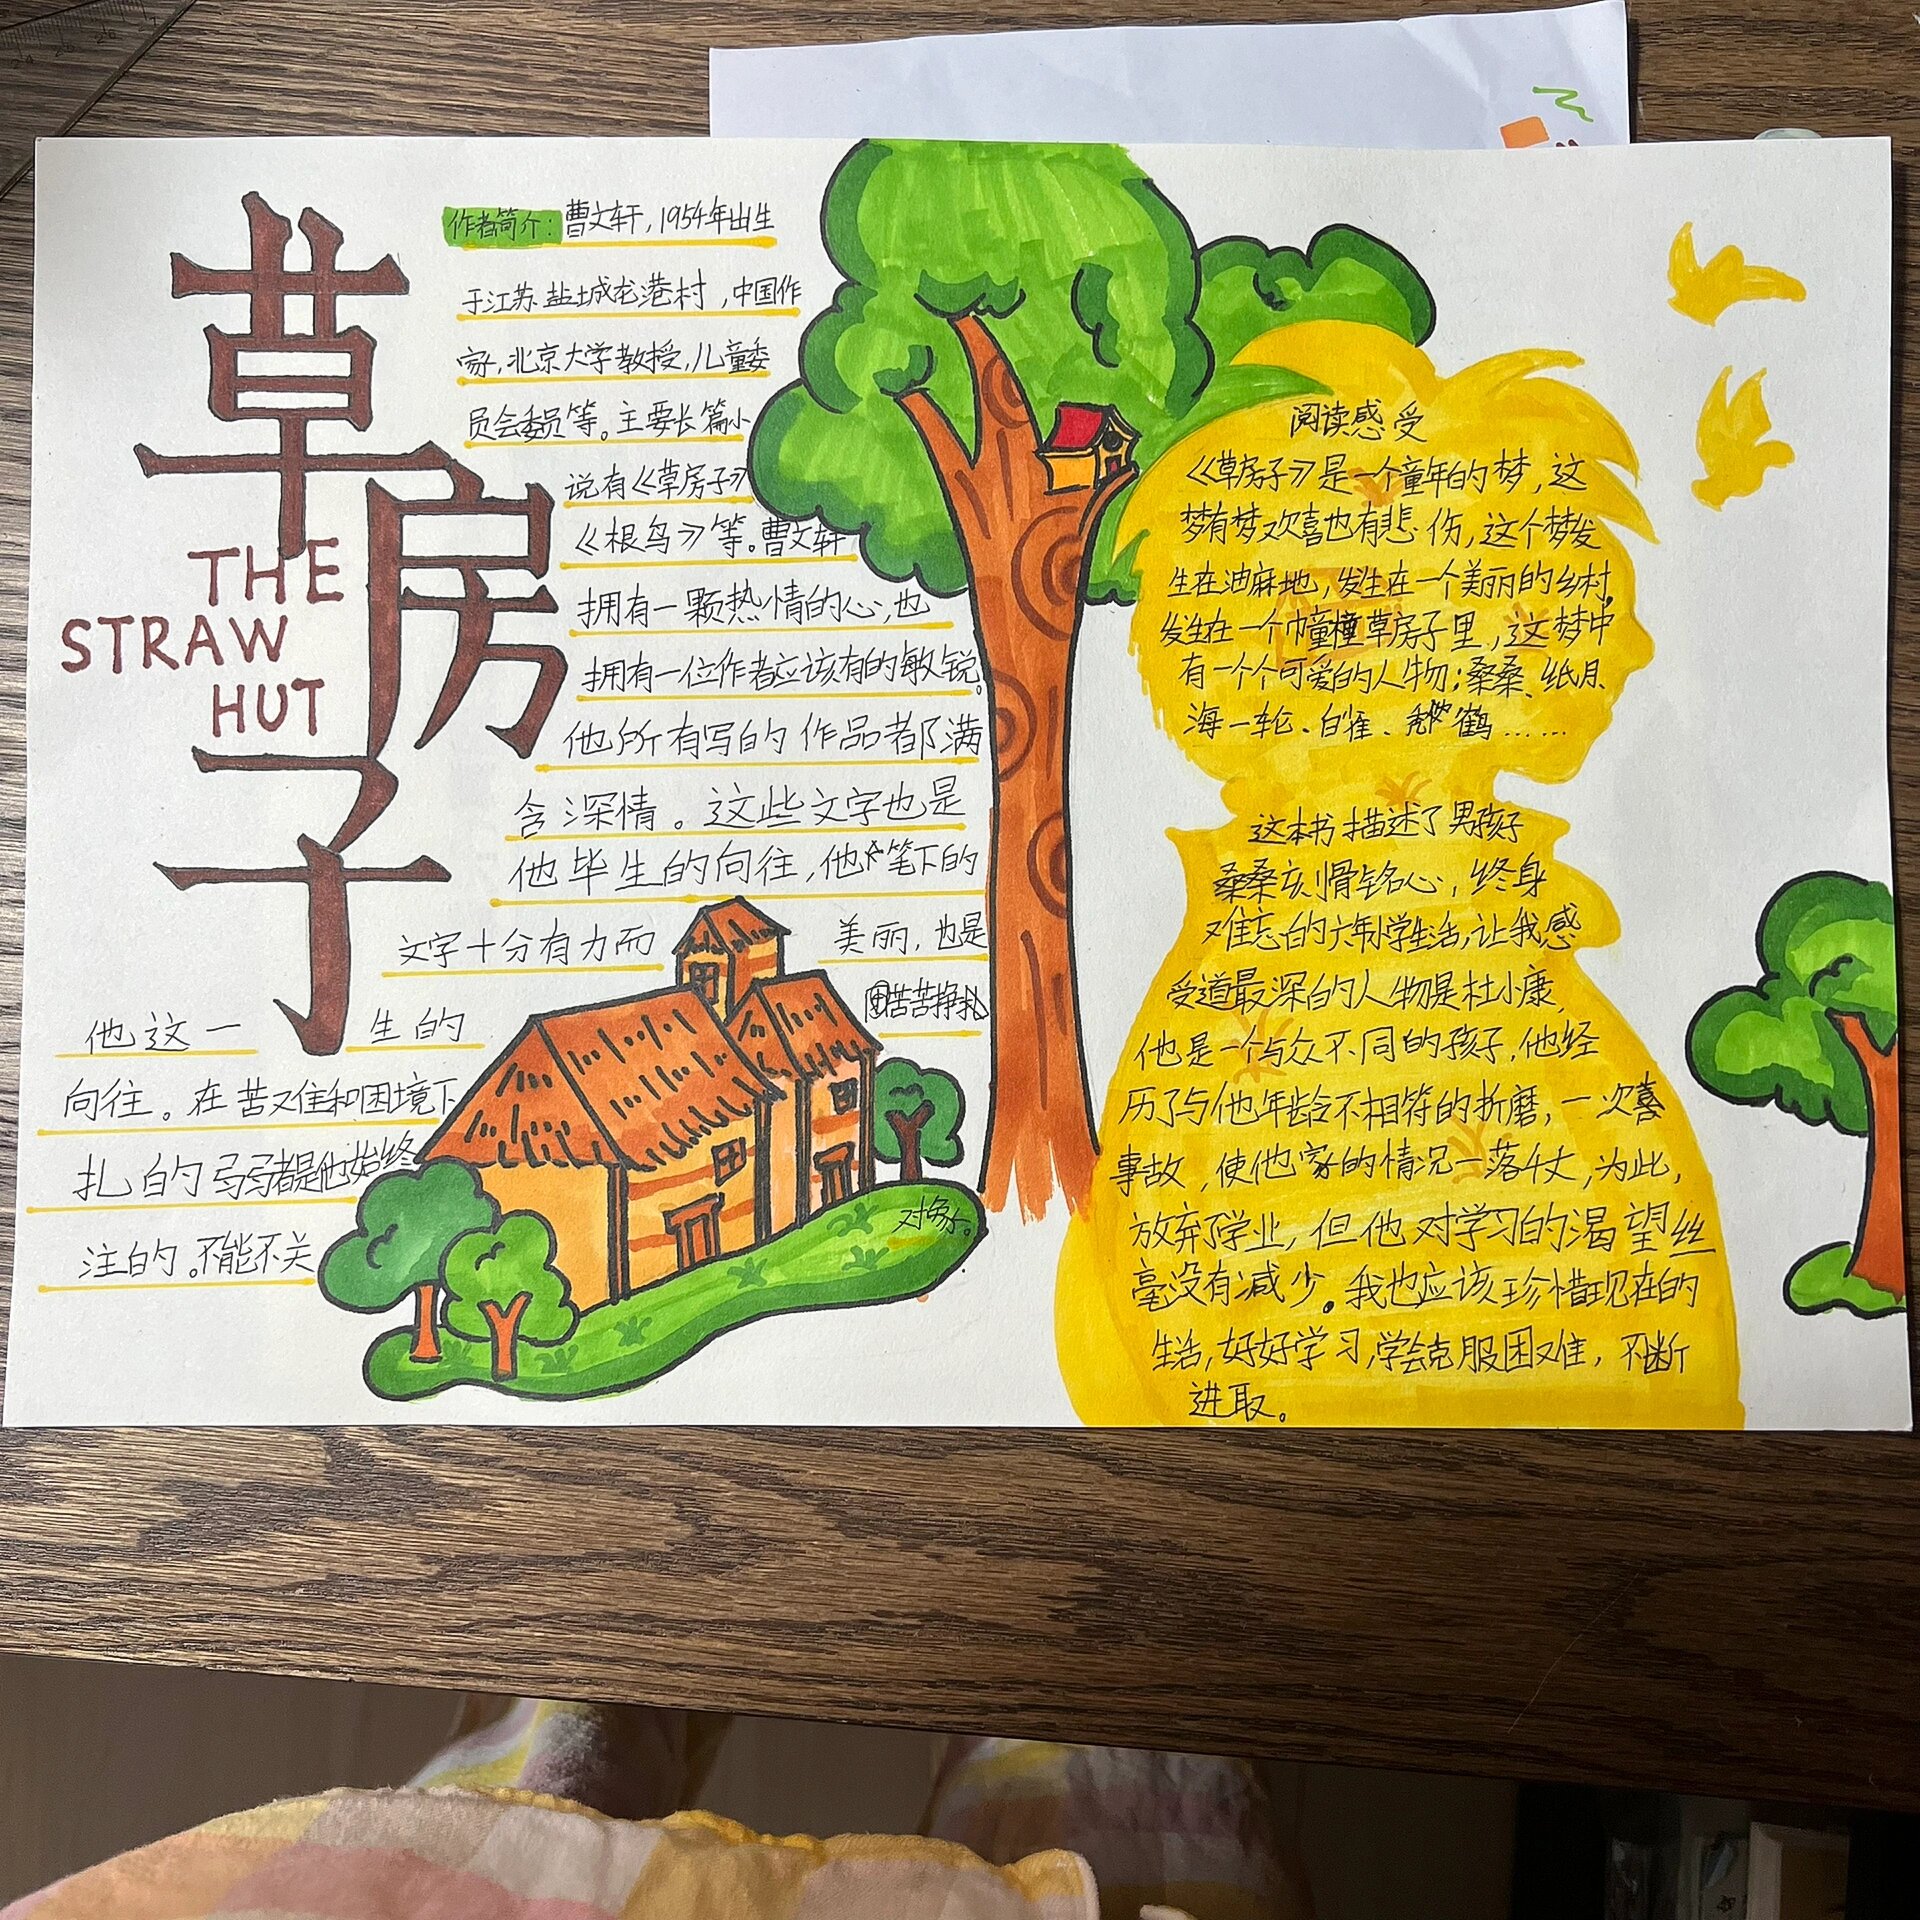 草房子
THE
STRAW
HUT
作者简介：曹文轩，1954年出生
于江苏盐城龙港村，中国作
家，北京大学教授，儿童委
员会委员等。主要长篇小
说有《草房子》
《根鸟》等。曹文轩
拥有一颗热情的心，也
拥有一位作者应该有的敏锐。
他所有写的作品都满
含深情。这些文字也是
他毕生的向往，他笔下的
文字十分有力而 美丽，也是
他这一 生的 困苦苦挣扎
向往。在苦难和困境下
扎的 弱都是他始终
注的。不能不关 对象。
阅读感受
《草房子》是一个童年的梦，这
梦有梦欢喜也有悲伤，这个梦发
生在油麻地，发生在一个美丽的乡村，
发生在一个幢幢草房子里，这梦中
有一个个可爱的人物；桑桑、纸月、
海一轮、白雀、秃鹤……
这本书描述了男孩子
桑桑刻骨铭心，终身
难忘的六年小学生活，让我感
受道最深的人物是杜小康，
他是一个与众不同的孩子，他经
历了与他年龄不相符的折磨，一次喜
事故，使他家的情况一落千丈，为此，
放弃了学业，但他对学习的渴望丝
毫没有减少。我也应该珍惜现在的
生活，好好学习，学会克服困难，不断
进取。